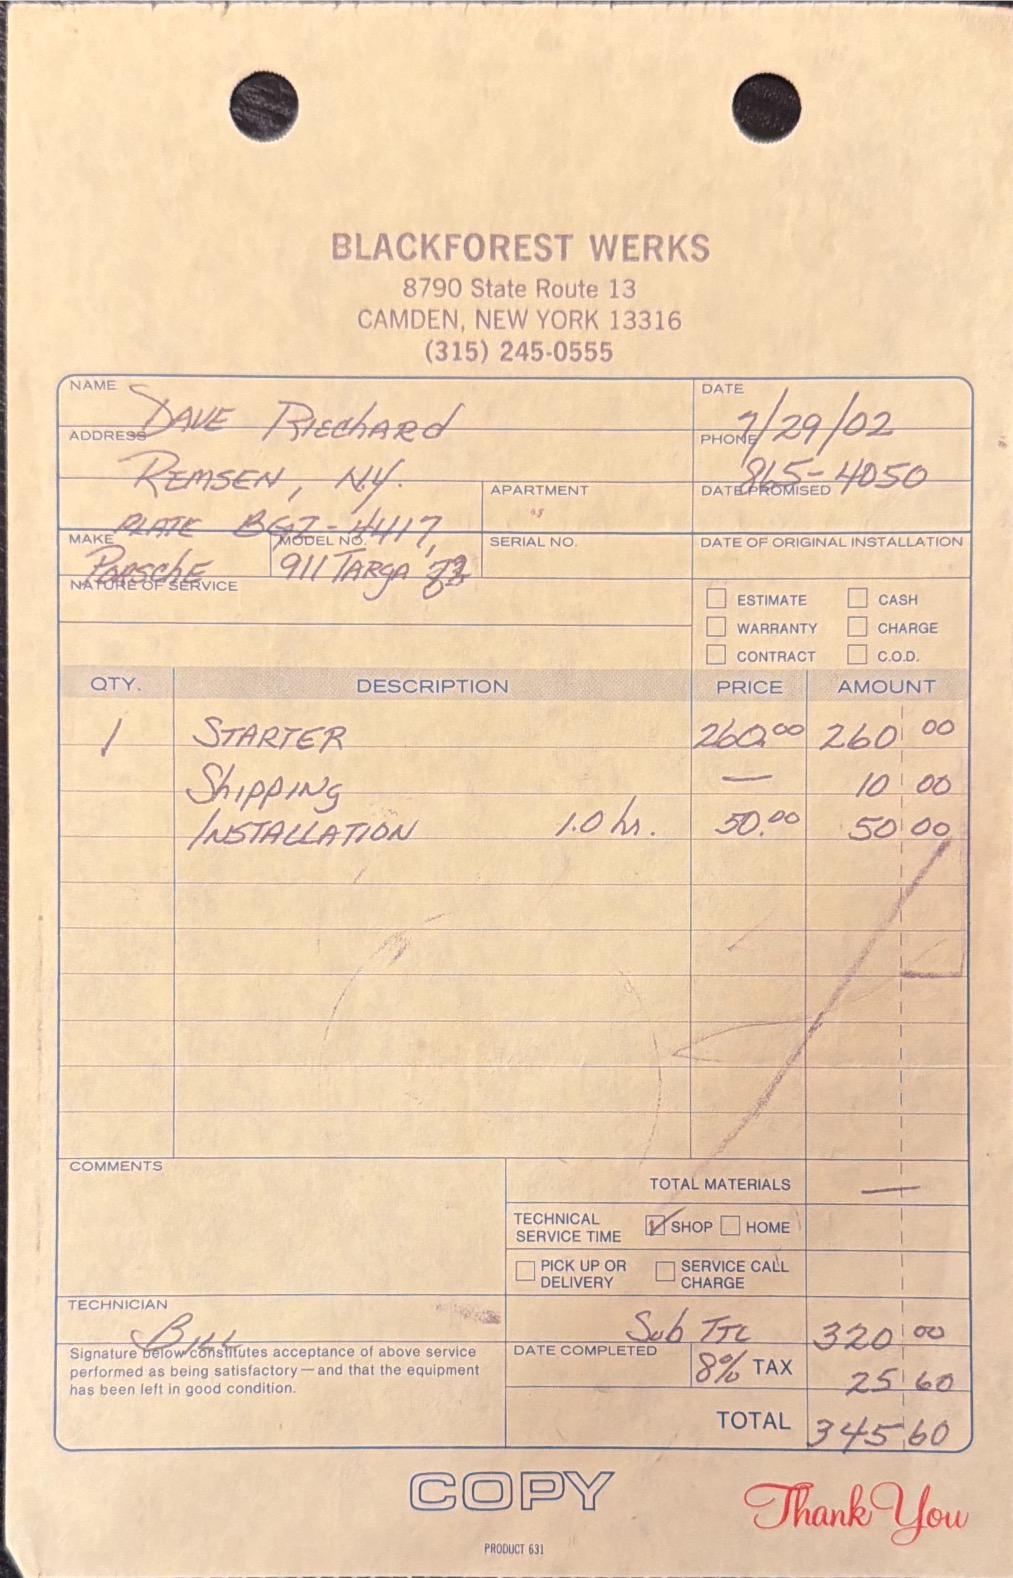 BLACKFOREST WERKS
8790 State Route 13
CAMDEN, NEW YORK 13316
(315) 245-0555
NAME DAVE RIECHARD
DATE 7/29/02
ADDRESS REMSEN, N.Y.
PHONE 865-4050
PLATE BGZ-4417,
APARTMENT
DATE PROMISED
MAKE PORSCHE
MODEL NO. 911 TARGA
SERIAL NO.
DATE OF ORIGINAL INSTALLATION
NATURE OF SERVICE
ESTIMATE CASH
WARRANTY CHARGE
CONTRACT C.O.D.
QTY. DESCRIPTION PRICE AMOUNT
1 STARTER 260.00 260 00
Shipping — 10 00
INSTALLATION 1.0 hr. 50.00 50 00
COMMENTS
TOTAL MATERIALS —
TECHNICAL SERVICE TIME SHOP HOME
PICK UP OR DELIVERY SERVICE CALL CHARGE
TECHNICIAN BILL
Sub TTL 320 00
Signature below constitutes acceptance of above service
performed as being satisfactory—and that the equipment
has been left in good condition.
DATE COMPLETED
8% TAX 25 60
TOTAL 345 60
COPY
Thank You
PRODUCT 631